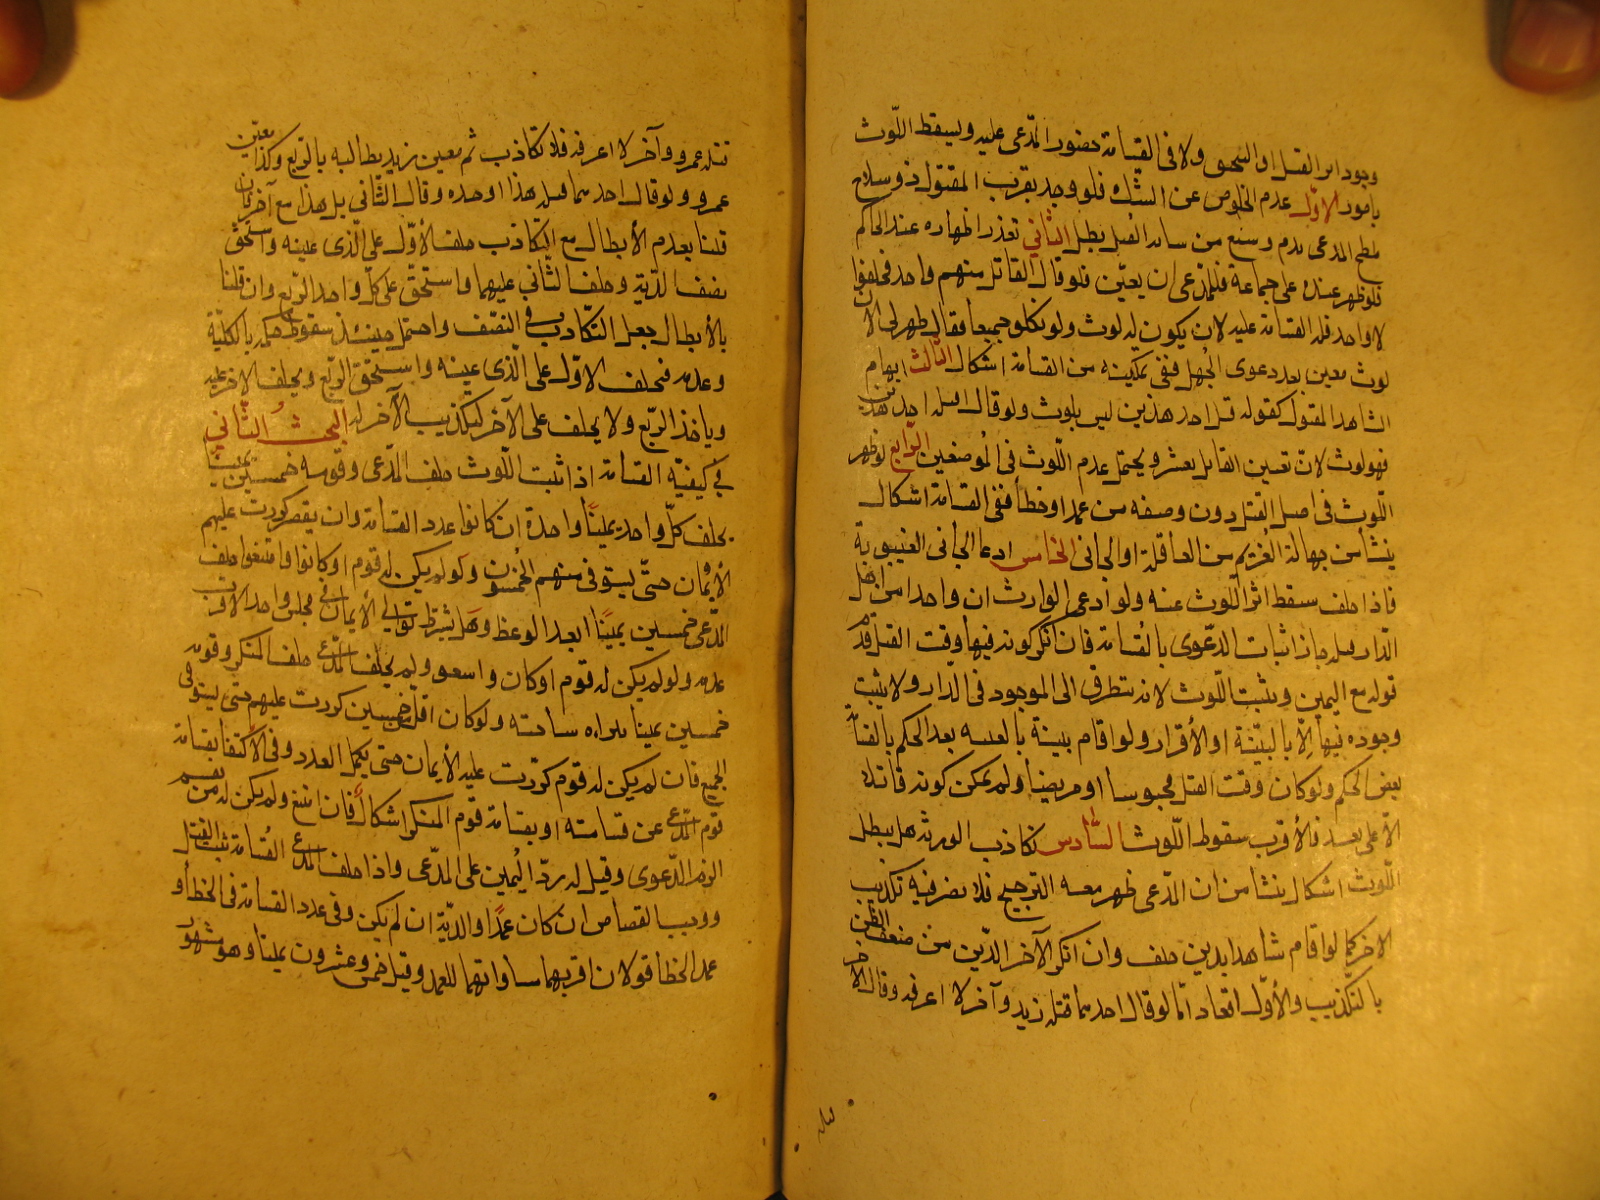 وجود اثر القتل او التخنق ولا فى القسامة حضور المدّعى عليه ويسقط اللّوث
بامور الاوّل عدم الخلوص عن الشك فلو وجد بقرب المقتول ذو سلاح
ملطخ المدعى بدم وسبع من سائد القتل بطل الثانى تعذر اظهاره عند الحاكم
فلو ظهر عنده على جماعة فللمدّعى ان يعيّن فلو قال القاتل منهم واحد فحلفوا
لا واحد فله القسامة عليه لان يكون له لوث ولو نكلو جميعا فقال ظهر لى الان
لوث معين بعد دعوى الجهل ففى تمكينه من القسامة اشكال الثالث ابهام
الشاهد المقتول كقوله قتل احد هذين ليس بلوث ولو قال قتله احد هذين
فهو لوث لانّ تعيين القاتل يعسر ويحتمل عدم اللّوث فى الموضعين الرّابع لو ظهر
اللّوث فى اصل القتل دون وصفه من عمد او خطأ ففى القسامة اشكال
ينشأ من جهالة الغريم من العاقلة او الجانى الخامس ادعا الجانى الغيبوبة
فاذا حلف سقط اثر اللّوث عنه ولو ادعى الوارث ان واحدا من اهل
الدّار قتله جاز اثبات الدّعوى بالقسامة فان انكر كونه فيها وقت القتل قدم
قوله مع اليمين ويثبت اللّوث لانه يتطرق الى الموجود فى الدّار ولا يثبت
وجوده فيها الّا بالبيّنة او الأقرار ولو اقام بينة بالغيبة بعد الحكم بالقسامة
نقض الحكم ولو كان وقت القتل محبوسا او مريضا ولم يمكن كونه قاتلا
الّا على بعد فالأقرب سقوط اللّوث السّادس تكاذب الورثة هل يبطل
اللّوث اشكال ينشا من ان المدّعى ظهر معه الترجيح فلا يضر فيه تكذيب
الاخر كما لو اقام شاهدا بدين حلف وان انكر الآخر الدّين من ضعف الظن
بالتّكذيب والأوّل اقعد اما لو قال احدهما قتله زيد وآخر لا اعرفه وقال الآخر
قتله عمرو وآخر لا اعرفه فلا تكاذب ثم معين زيد يطالبه بالرّبع وكذا معيّن
عمرو ولو قال احدهما قتله هذا وحده وقال الثّانى بل هذا مع آخر فان
قلنا بعدم الأبطال مع التكاذب حلف الأوّل على الّذى عينه واستحق
نصف الدّيّة وحلف الثّانى عليهما واستحقّ على كلّ واحد الرّبع وان قلنا
بالأبطال جعل التّكاذب فى النّصف واحتمل حينئذ سقوط حكمه بالكليّة
وعدمه فيحلف الاوّل على الّذى عينه واستحق الرّبع ويحلف الآخر عليه
وياخذ الرّبع ولا يحلف على الآخر لتكذيب الآخر له البحث الثّانى
فى كيفيّه القسامة اذا ثبت اللّوث حلف المدّعى وقومه خمسين يمينا
يحلف كلّ واحد يمينًا واحدة ان كانوا عدد القسامة وان نقصو كررت عليهم
الأيمان حتّى يستوفى منهم الخمسون ولو لم يكن له قوم او كانوا فامتنعوا حلف
المدّعى خمسين يمينًا بعد الوعظ وهل يشترط توالى الأيمان فى مجلس واحد الاقرب
عدمه ولو لم يكن له قوم او كان واسعو ولم يحلف المدّعى حلف المنكر وقومه
خمسين يمينا ببراءه ساحته ولو كان اقلّ خمسين كررت عليهم حتى يستوفى
الجميع فان لم يكن له قوم كرّرت عليه الأيمان حتى يكمل العدد وفى الاكتفا بقسامة
قوم المدّعى عن قسامته او بقسامة قوم المنكر اشكال فان امتنع ولم يكن له من يقسم
الزم الدّعوى وقيل له ردّ اليمين على المدّعى واذا حلف المدّعى القسامة ثبت القتل
ووجب القصاص ان كان عمدًا والديّة ان لم يكن وفى عدد القسامة فى الخطأ و
عمد الخطا قولان اقربهما مساواتهما للعمد وقيل خمس وعشرون يمينا وهو مشهور